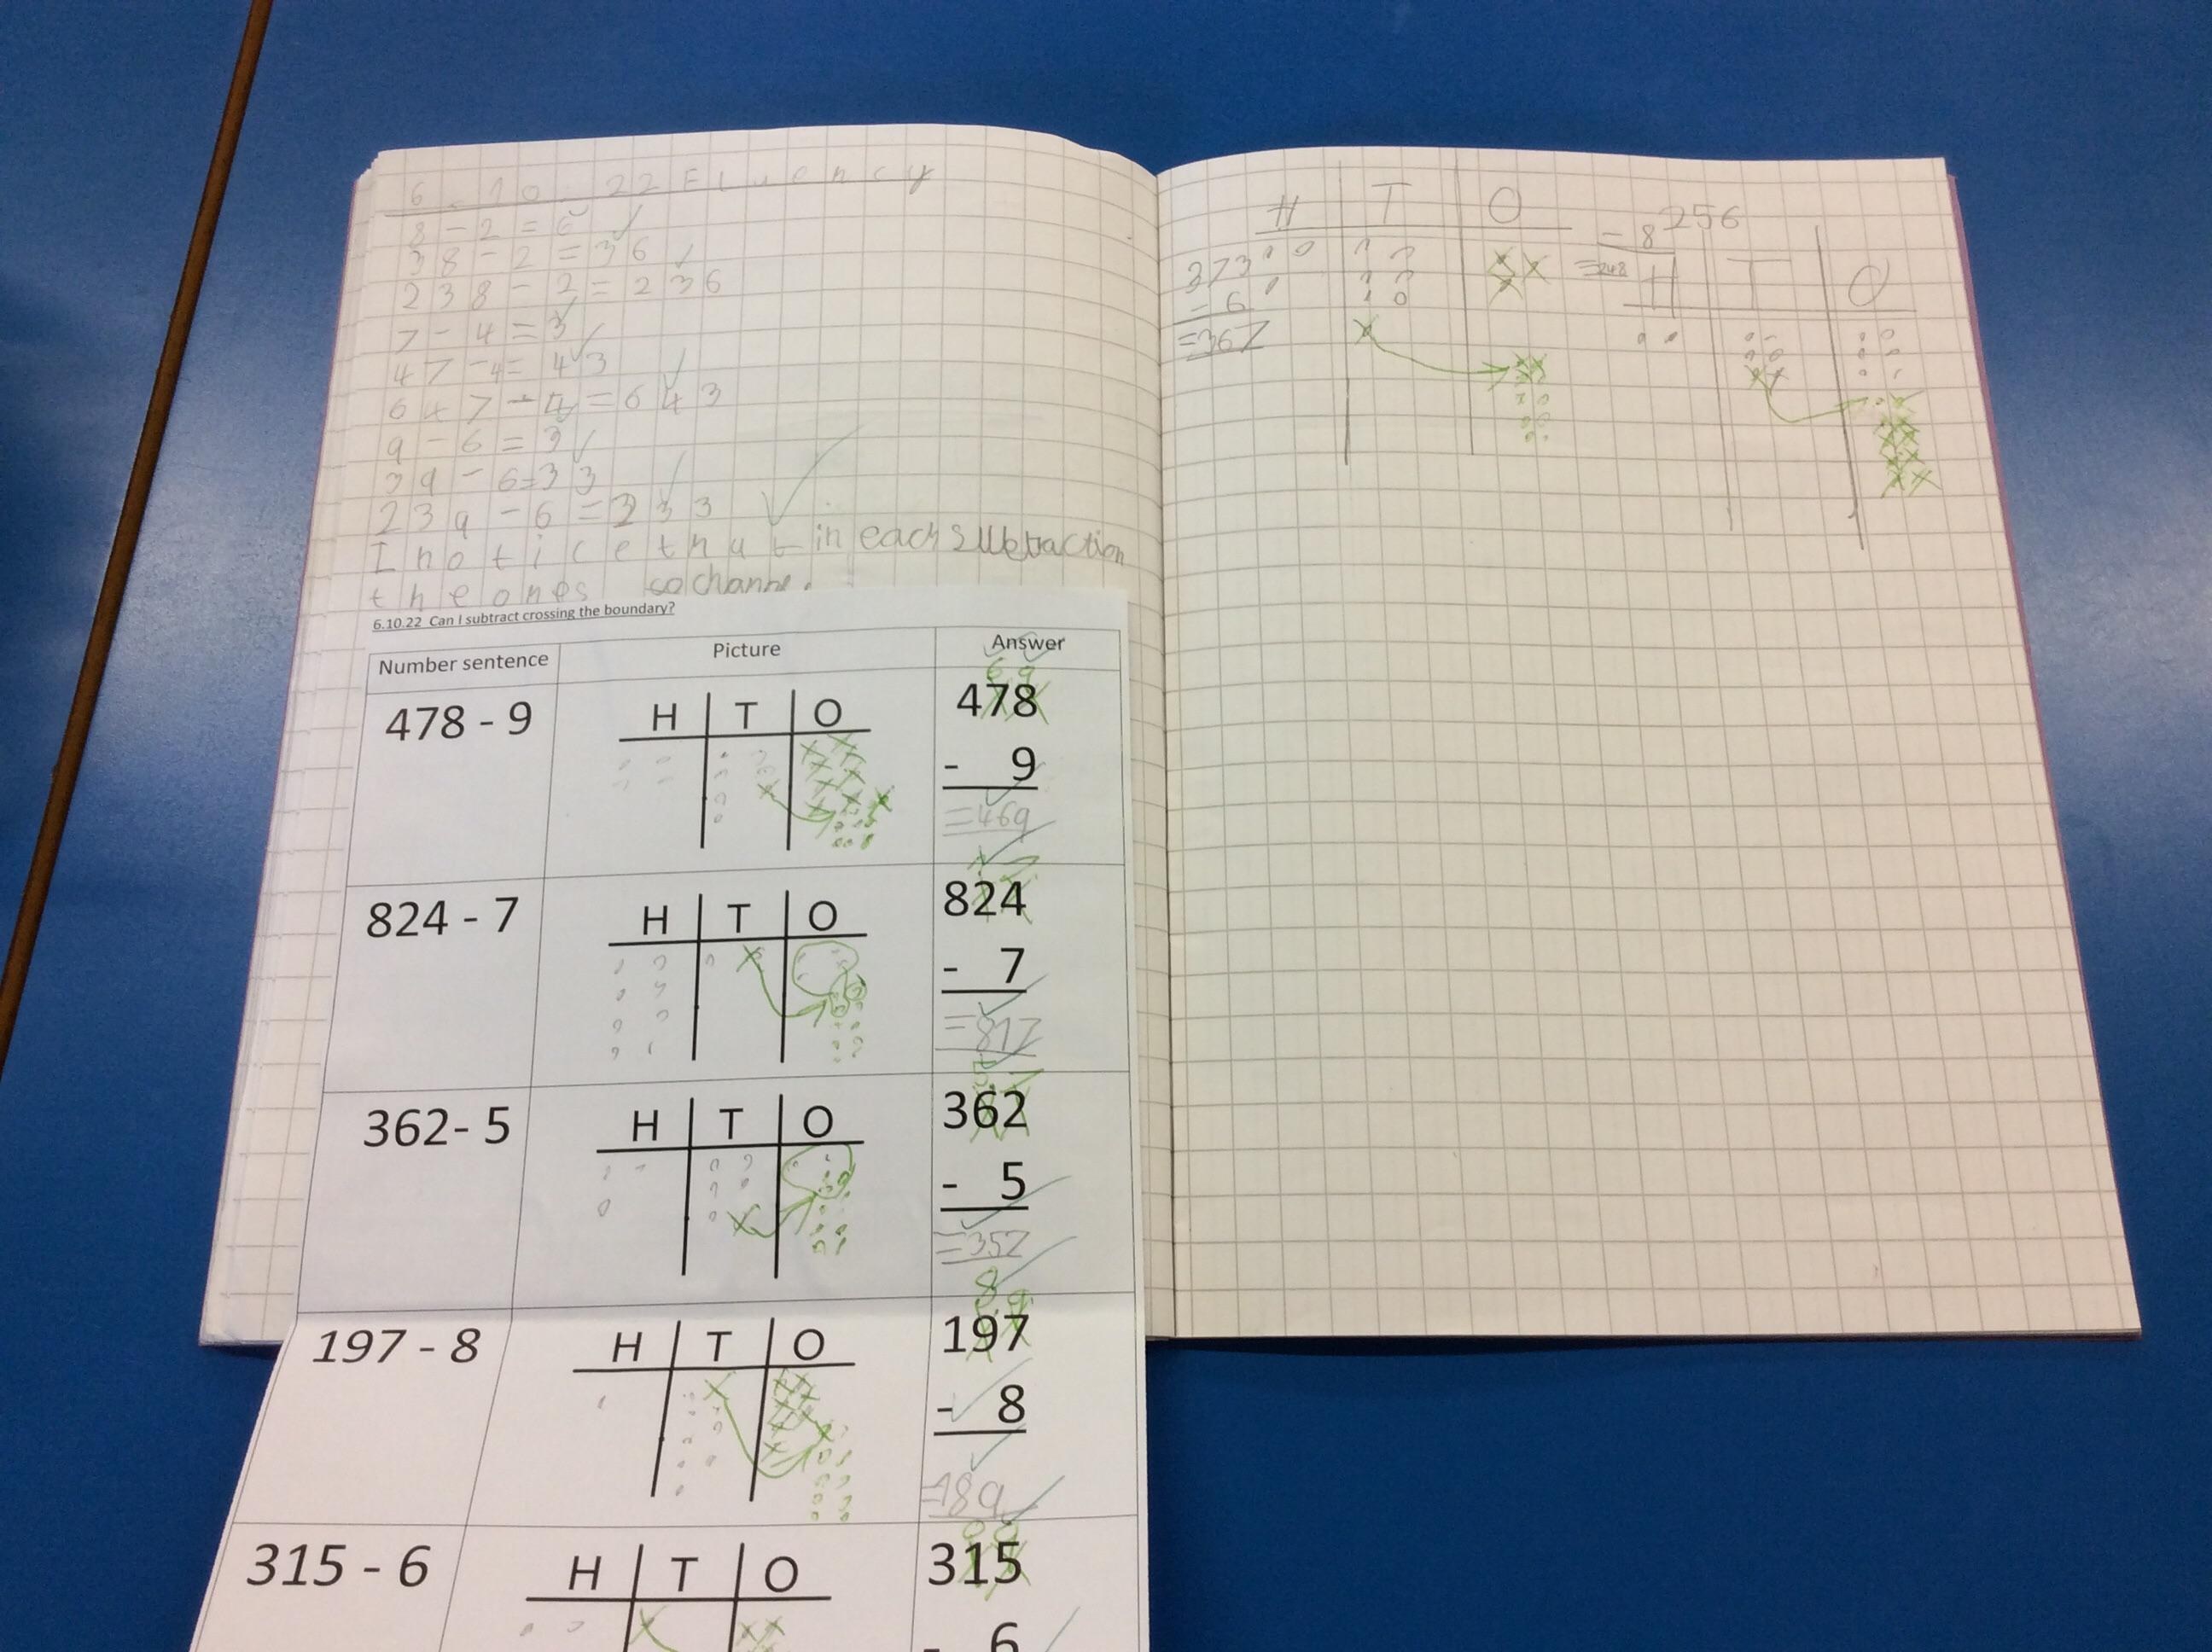 6.10.22 Fluency
8-2=6
38-2=36
238-2=236
7-4=3
47-4=43
647-4=643
9-6=3
39-6=33
239-6=233
I notice that in each subtraction
the ones
6.10.22 Can I subtract crossing the boundary?
Number sentence Picture Answer
6 9
478 - 9 H T O 478
- 9
=469
824 - 7 H T O 824
- 7
=817
362- 5 H T O 362
- 5
=357
8 9
197 - 8 H T O 197
- 8
=189
315 - 6 H T O 315
- 6
H T O
373
- 6
=367
256
- 8
=248
H T O